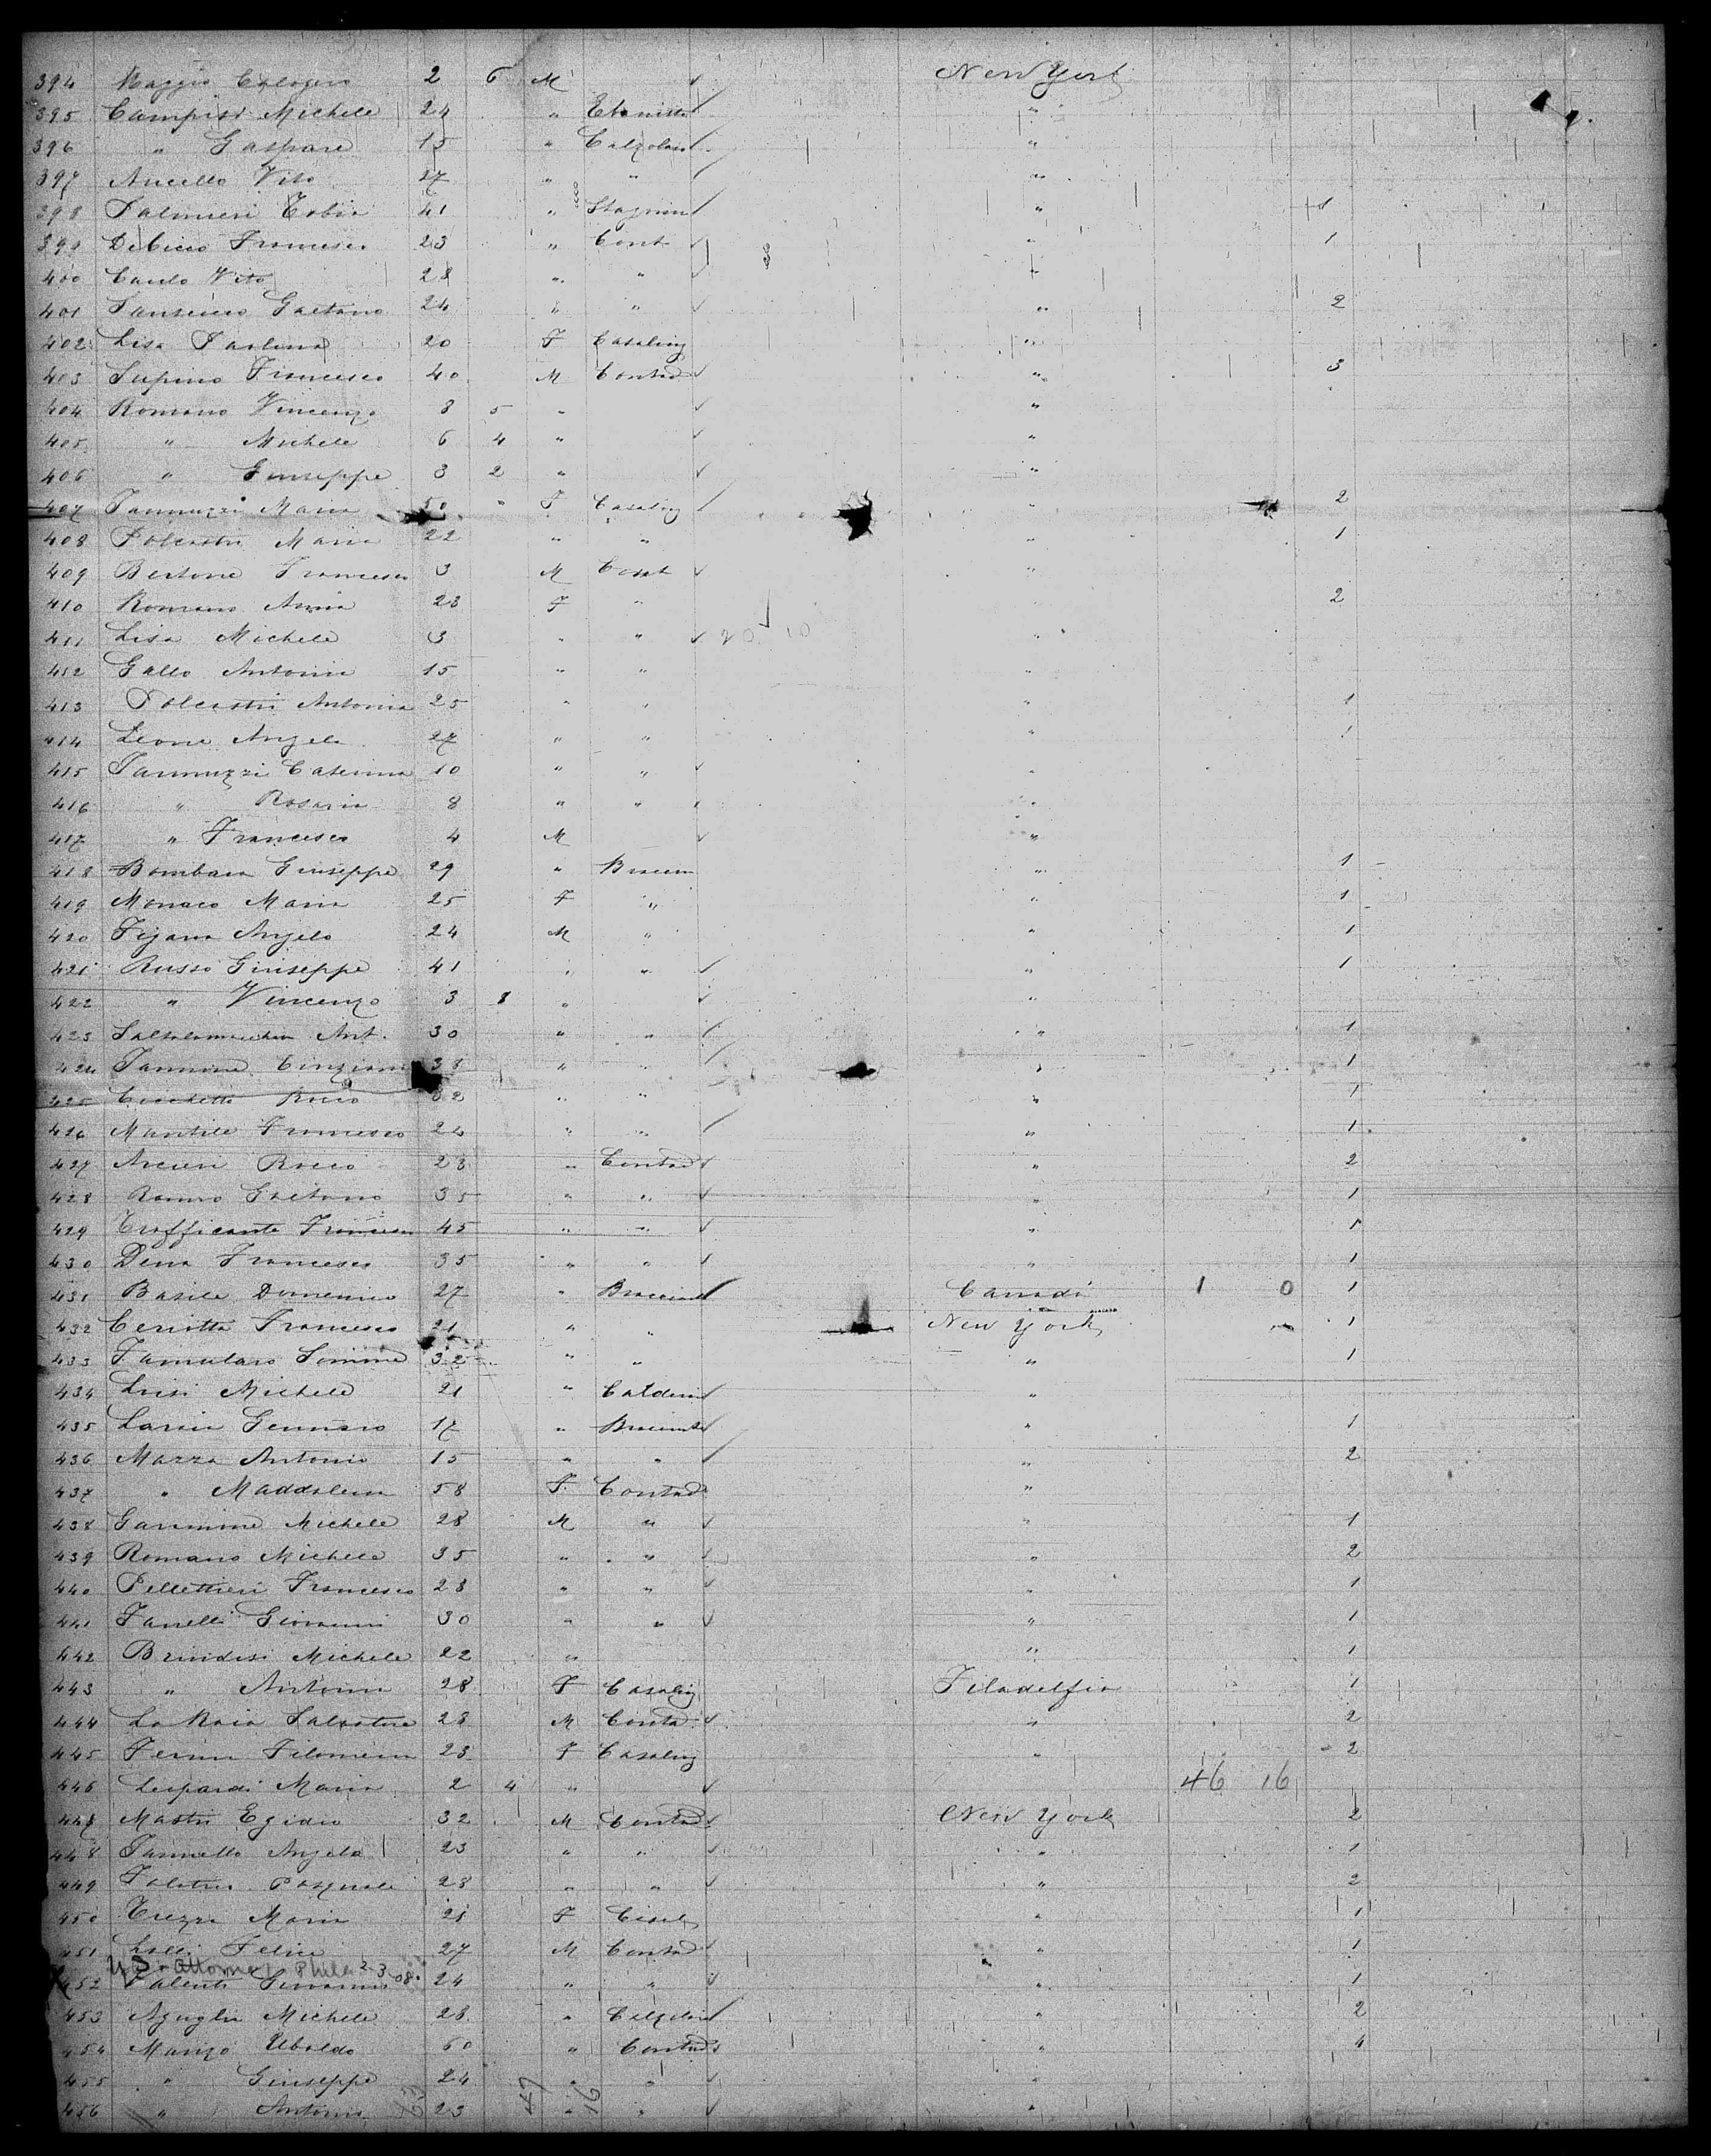 394 Maggio Calogero 2 6 M ✓ New York
395 Campisi Michele 24 " Ebanista ✓ "
396 " Gaspare 15 " Calzolaio ✓ "
397 Aucello Vito 27 " " ✓ "
398 Palmieri Tobia 41 " Stagnin ✓ " 1
399 DeCicco Francesco 23 " Cont ✓ " 1
400 Vito 28 " " ✓ "
401 Gaetano 24 " " ✓ " 2
402 Lisa Paolina 20 F Casaling "
403 Supino Francesco 40 M Contad ✓ " 3
404 Romano Vincenzo 8 5 " ✓ "
405 " Michele 6 4 " ✓ "
406 " Giuseppe 3 2 " ✓ "
407 Iannuzzi Maria 50 " F Casaling ✓ " 2
408 Polcastri Maria 22 " " " 1
409 Bertone Francesco 3 M Cont ✓ "
410 Romano Anna 23 F " " 2
411 Lisa Michele 3 " " ✓ 20 10 "
412 Gallo Antonia 15 " " "
413 Polcastri Antonia 25 " " " 1
414 Leone Angela 27 " " " 1
415 Iannuzzi Caterina 10 " " ✓ "
416 " Rosaria 8 " " ✓ "
417 " Francesco 4 M ✓ "
418 Bombara Giuseppe 29 " Braccian " 1
419 Monaco Maria 25 F " " 1
420 Angelo 24 M " " 1
421 Russo Giuseppe 41 " " ✓ " 1
422 " Vincenzo 3 8 " ✓ "
423 Saltalamacchia Ant. 30 " " ✓ " 1
424 Iannone 38 " " ✓ " 1
425 Rocco 32 " " " 1
426 Mantile Francesco 22 " " ✓ " 1
427 Arcieri Rocco 28 " Contad ✓ " 2
428 Gaetano 35 " " ✓ " 1
429 Trafficante Francesco 45 " " ✓ " 1
430 Francesco 35 " " ✓ " 1
431 Basile Domenico 27 " Bracciant ✓ Canadà 1 0 1
432 Francesco 21 " " New York 1
433 Famularo 32 " " " 1
434 Luisi Michele 21 " ✓ "
435 Gennaro 17 " Bracciante ✓ " 1
436 Mazza Antonio 15 " " ✓ " 2
437 " Maddalena 58 F. Contad "
438 Michele 28 M " ✓ " 1
439 Romano Michele 35 " " ✓ " 2
440 Pellettieri Francesco 28 " " ✓ " 1
441 Fanelli Giovanni 30 " " ✓ " 1
442 Brindisi Michele 22 " " 1
443 " Antonia 28 F Casaling Filadelfia 1
444 Salvatore 28 M Contad. ✓ " 2
445 Filomena 23 F Casaling " 2
446 Leopardi Maria 2 4 " ✓ 46 16
447 Mastri Egidio 32 M Contad. ✓ New York 2
448 Iannello Angelo 23 " " ✓ " 1
449 Pasquale 28 " " ✓ " 2
450 Maria 21 F " 1
451 Lalli Felice 27 M Contad ✓ " 1
U.S. Attorney Phila 2-3-08.
X 452 Giovanni 24 " " ✓ " 1
453 Aguglia Michele 28 " Calzolaio ✓ " 2
454 Manzo Ubaldo 60 " Contad ✓ " 4
455 " Giuseppe 24 " " ✓ "
456 " Antonio 23 " " ✓ "
47 16